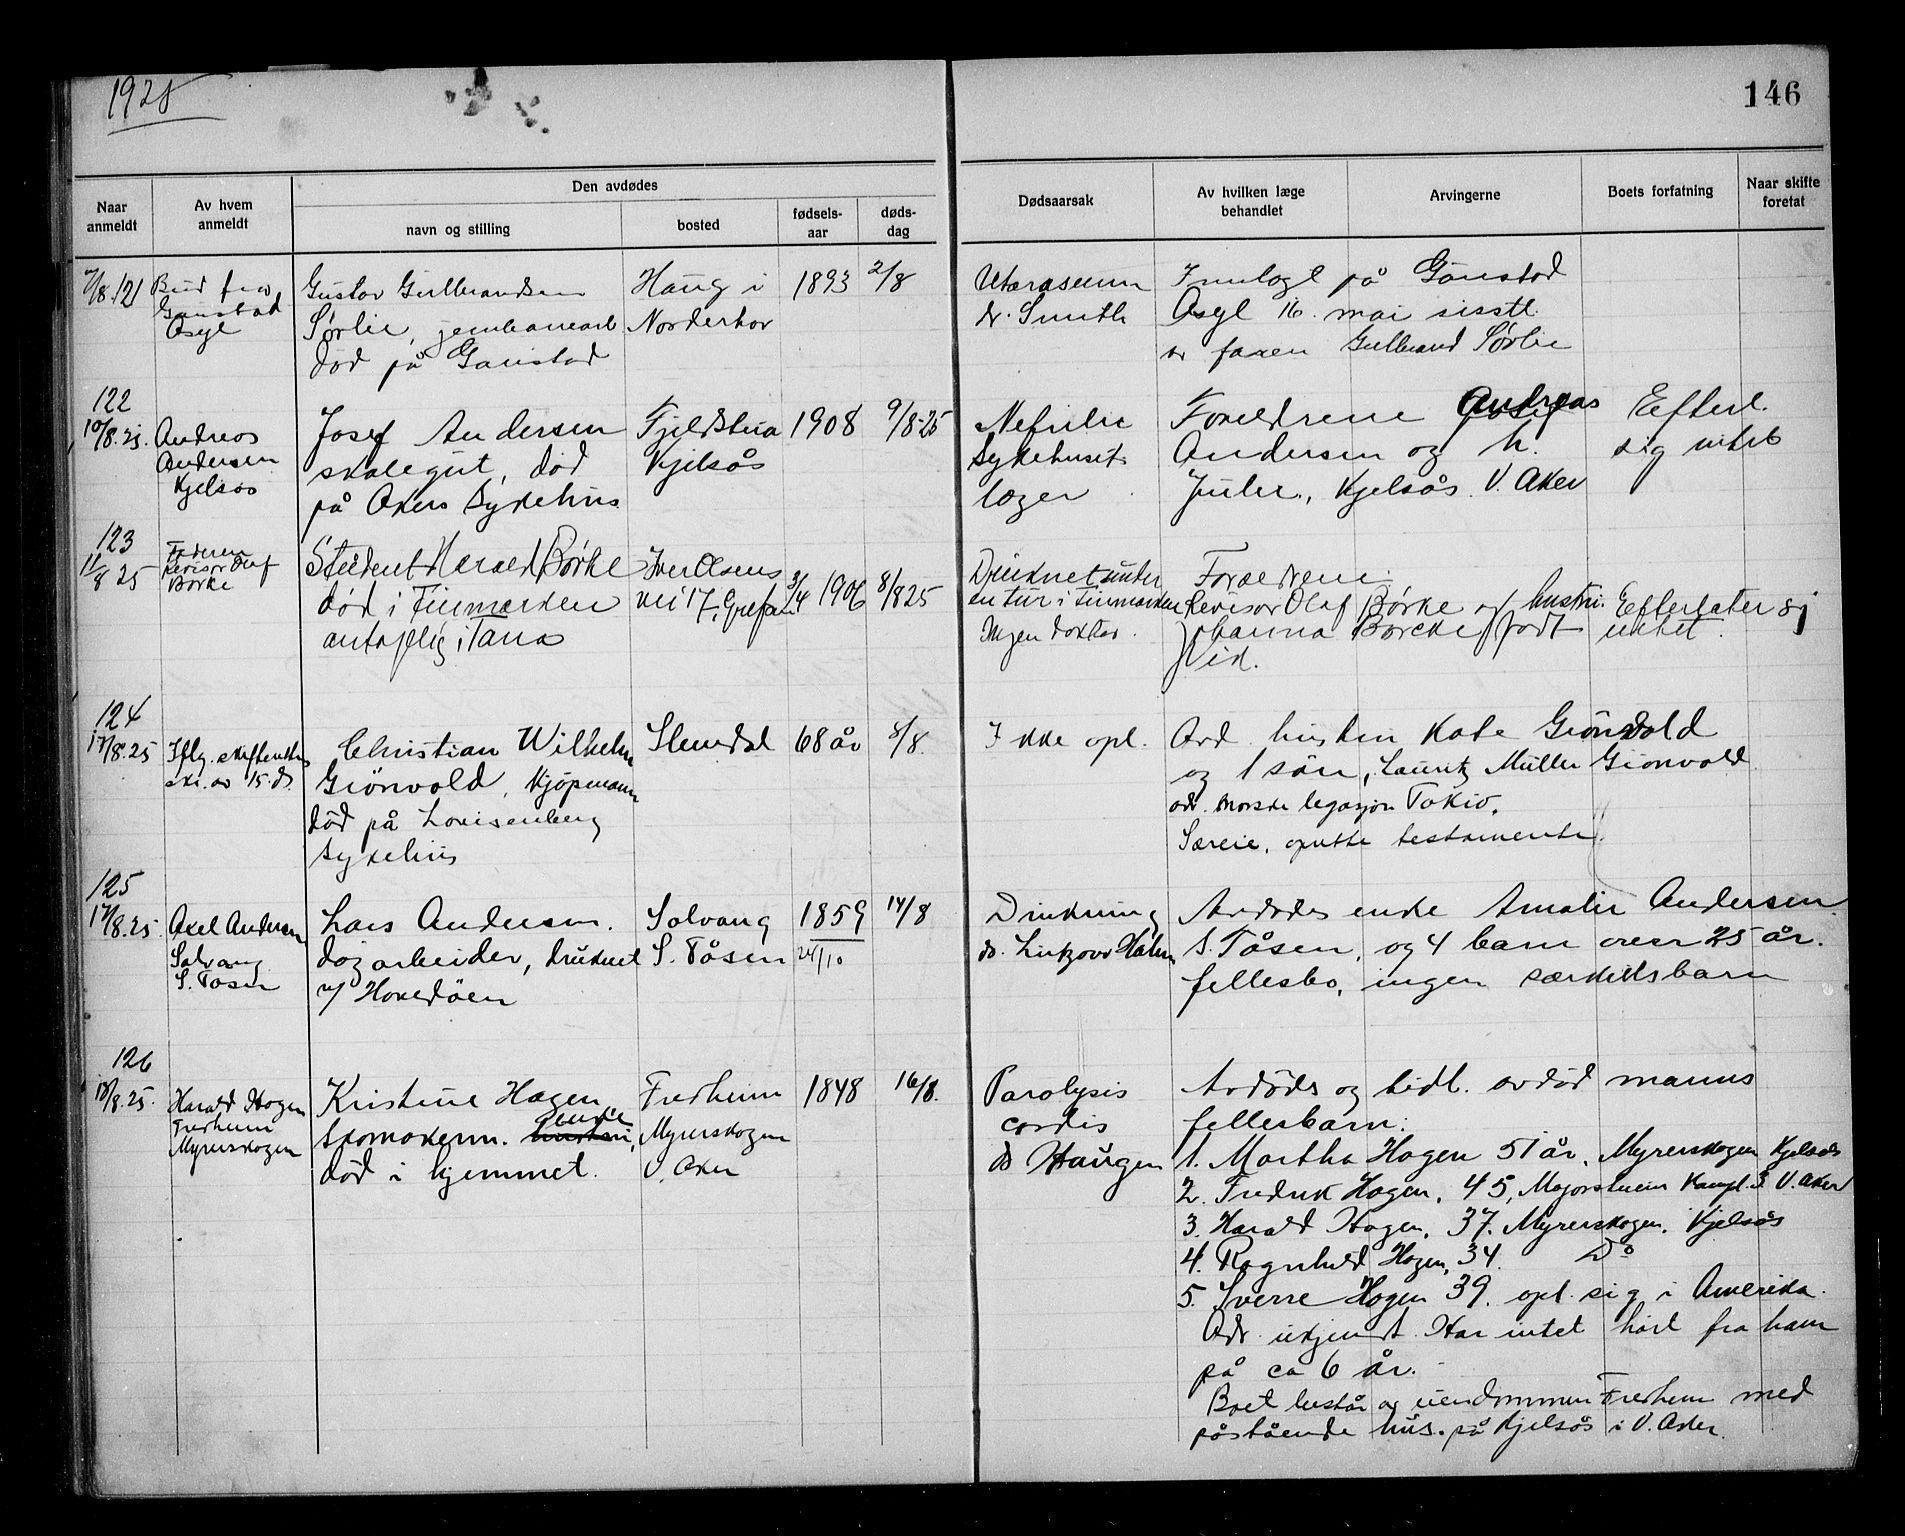 1925
146
Naar anmeldt
Av hvem anmeldt
Den avdødes
navn og stilling
bosted
fødsels-aar
døds-dag
Dødsaarsak
Av hvilken læge behandlet
Arvingerne
Boets forfatning
Naar skifte foretat
7/8 121
Bud fra
Gaustad
Asyl
Gustav Gulbrandsen
Sørlie, jernbanearb
død på Gaustad
Haug i
Norderhov
1893
2/8
dr. Smith
Innlagt på Gaustad
Asyl 16. mai sisstl.
av faren Gulbrand Sørlie
122
10/8.25.
Andreas
Andersen
Kjelsås
Josef Andersen
skolegut, død
på Akers Sykehus
Fjeldstua
Kjelsås
1908
9/8-25
Nefritis
Sykehusets
læger
Foreldrene Andreas
Andersen og h.
Julie, Kjelsås V. Aker
Efterl.
sig intet
123
11/8 25
Faderen
revisor Oluf
Børke
Student Harald Børke
død i Finmarken
antagelig i Tana
Iver Olsens
vei 17, Grefsen
3/4 1906
8/8 25
Druknet under
en tur i Finmarken
Ingen doktor.
Foreldrene
Revisor Olaf Børke og hustru
Johanna Børcke født
Vik.
Efterlater sig
intet.
124
17/8.25
Iflg. skifterettens
skr. av 15. ds.
Christian Wilhelm
Grönvold, Kjøpmann
död på Lovisenberg
sykehus
Slemdal
68 år
8/8
Ikke opl.
Avd. hustru Kate Grönvold
og 1 søn, Lauritz Müller Grönvold
adr. Norske legasjon Tokio.
Særeie, oprette testamente.
125
17/8.25
Axel Andersen
Solvang
S. Tåsen
Lars Andersen.
dagarbeider, druknet
v/ Hovedöen
Solvang
S. Tåsen
1859
24/10
14/8
Drukning
Avdødes enke Amalie Andersen
S. Tåsen, og 4 barn over 25 år.
fellesbo, ingen særkulsbarn
126
18/8.25.
Harald Hagen
Fredheim
Myrerskogen
Kristine Hagen
skomakerm. enke
død i hjemmet.
Fredheim
Myrerskogen
V. Aker
1848
16/8.
Paralysis
cordis
dr Haugen
Avdøds og tidl. avdød manns
fellesbarn:
1. Martha Hagen 51 år, Myrerskogen Kjelsås
2. Fredrik Hagen, 45, Majorstuen Kampl. 3 V. Aker
3. Harald Hagen, 37. Myrerskogen, Kjelsås
4. Ragnhild Hagen, 34. Do
5. Sverre Hagen 39. opl. sig i Amerika.
Adr. ukjendt. Har intet hørt fra ham
på ca 6 år.
Boet består av eiendommen Fredheim med
påstående hus. på Kjelsås i V. Aker.